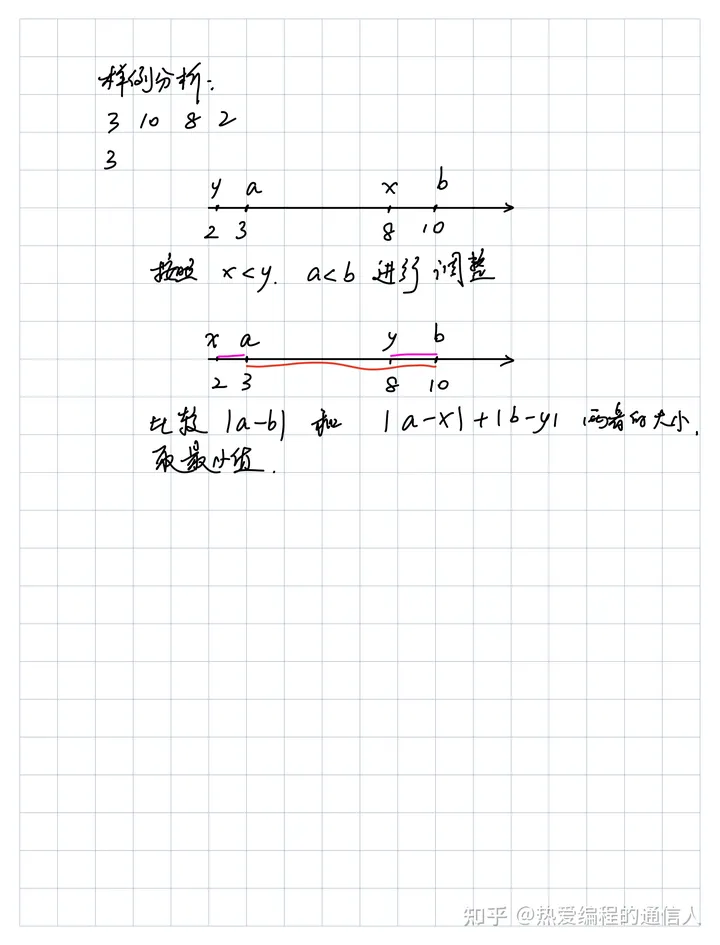 样例分析:
3 10 8 2
3
y a x b
2 3 8 10
按照 x<y. a<b 进行调整
x a y b
2 3 8 10
比较 |a-b| 和 |a-x|+|b-y| 两者的大小,
取最小值.
知乎 @热爱编程的通信人